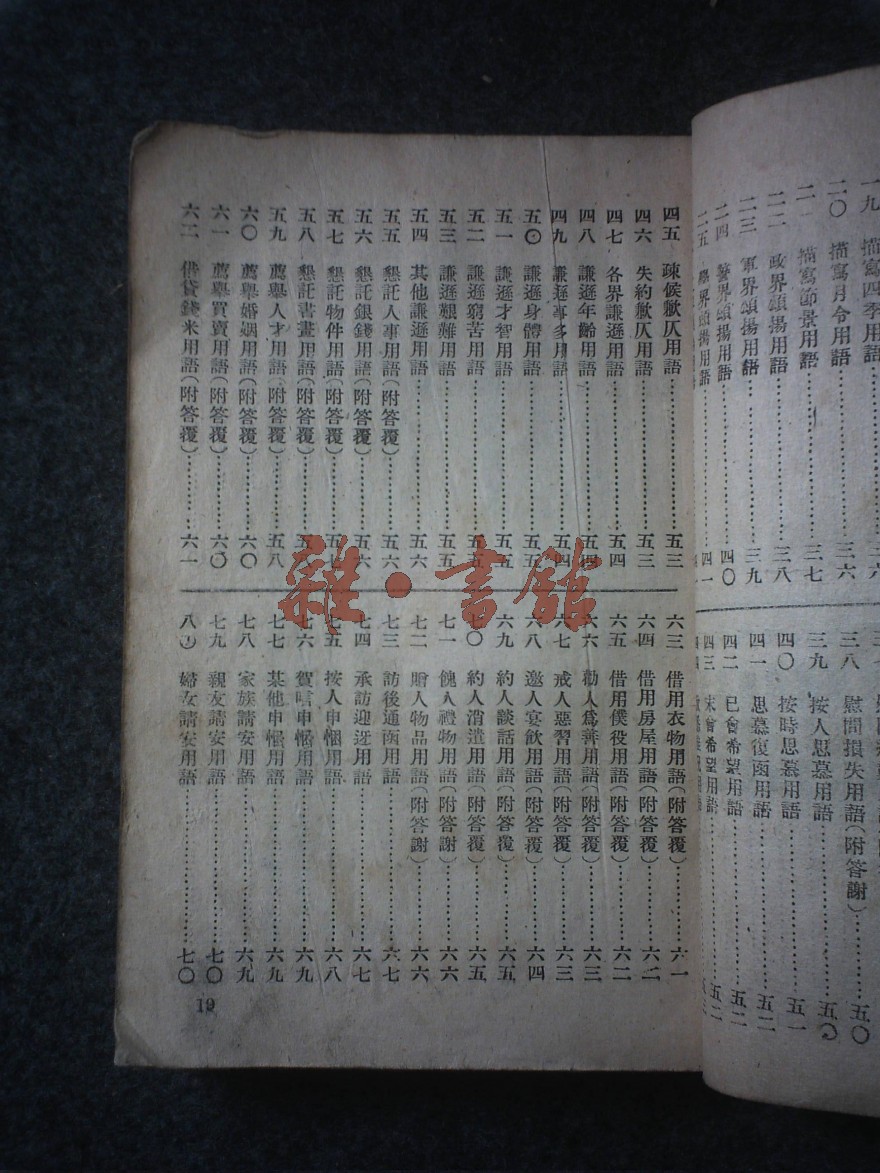 一九 描寫四季用語
二〇 描寫月令用語……三六
二一 描寫節景用語……三七
二二 政界頌揚用語……三八
二三 軍界頌揚用語……三九
二四 警界頌揚用語……四〇
二五 學界頌揚用語……四一
三八 慰問損失用語(附答謝)……五〇
三九 按人思慕用語……五〇
四〇 按時思慕用語……五一
四一 思慕復函用語……五二
四二 已會希望用語……五二
四三 未會希望用語……五二
四五 疎候歉仄用語……五三
四六 失約歉仄用語……五三
四七 各界謙遜用語……五四
四八 謙遜年齡用語……五四
四九 謙遜事多用語……五四
五〇 謙遜身體用語……五五
五一 謙遜才智用語……五五
五二 謙遜窮苦用語……五五
五三 謙遜艱難用語……五五
五四 其他謙遜用語……五六
五五 懇託人事用語(附答覆)……五六
五六 懇託銀錢用語(附答覆)……五六
五七 懇託物件用語(附答覆)……五七
五八 懇託書畫用語(附答覆)……五八
五九 薦舉人才用語(附答覆)……五八
六〇 薦舉婚姻用語(附答覆)……六〇
六一 薦舉買賣用語(附答覆)……六〇
六二 借貸錢米用語(附答覆)……六一
六三 借用衣物用語(附答覆)……六一
六四 借用房屋用語(附答覆)……六二
六五 借用僕役用語(附答覆)……六二
六六 勸人爲善用語(附答覆)……六三
六七 戒人惡習用語(附答覆)……六三
六八 邀人宴飲用語(附答覆)……六四
六九 約人談話用語(附答覆)……六五
七〇 約人消遣用語(附答覆)……六五
七一 餽人禮物用語(附答謝)……六六
七二 贈人物品用語(附答謝)……六六
七三 訪後通函用語……六七
七四 承訪迎迓用語……六七
七五 按人申悃用語……六八
七六 賀唁申悃用語……六九
七七 其他申悃用語……六九
七八 家族請安用語……六九
七九 親友請安用語……七〇
八〇 婦女請安用語……七〇
19
雜·書館